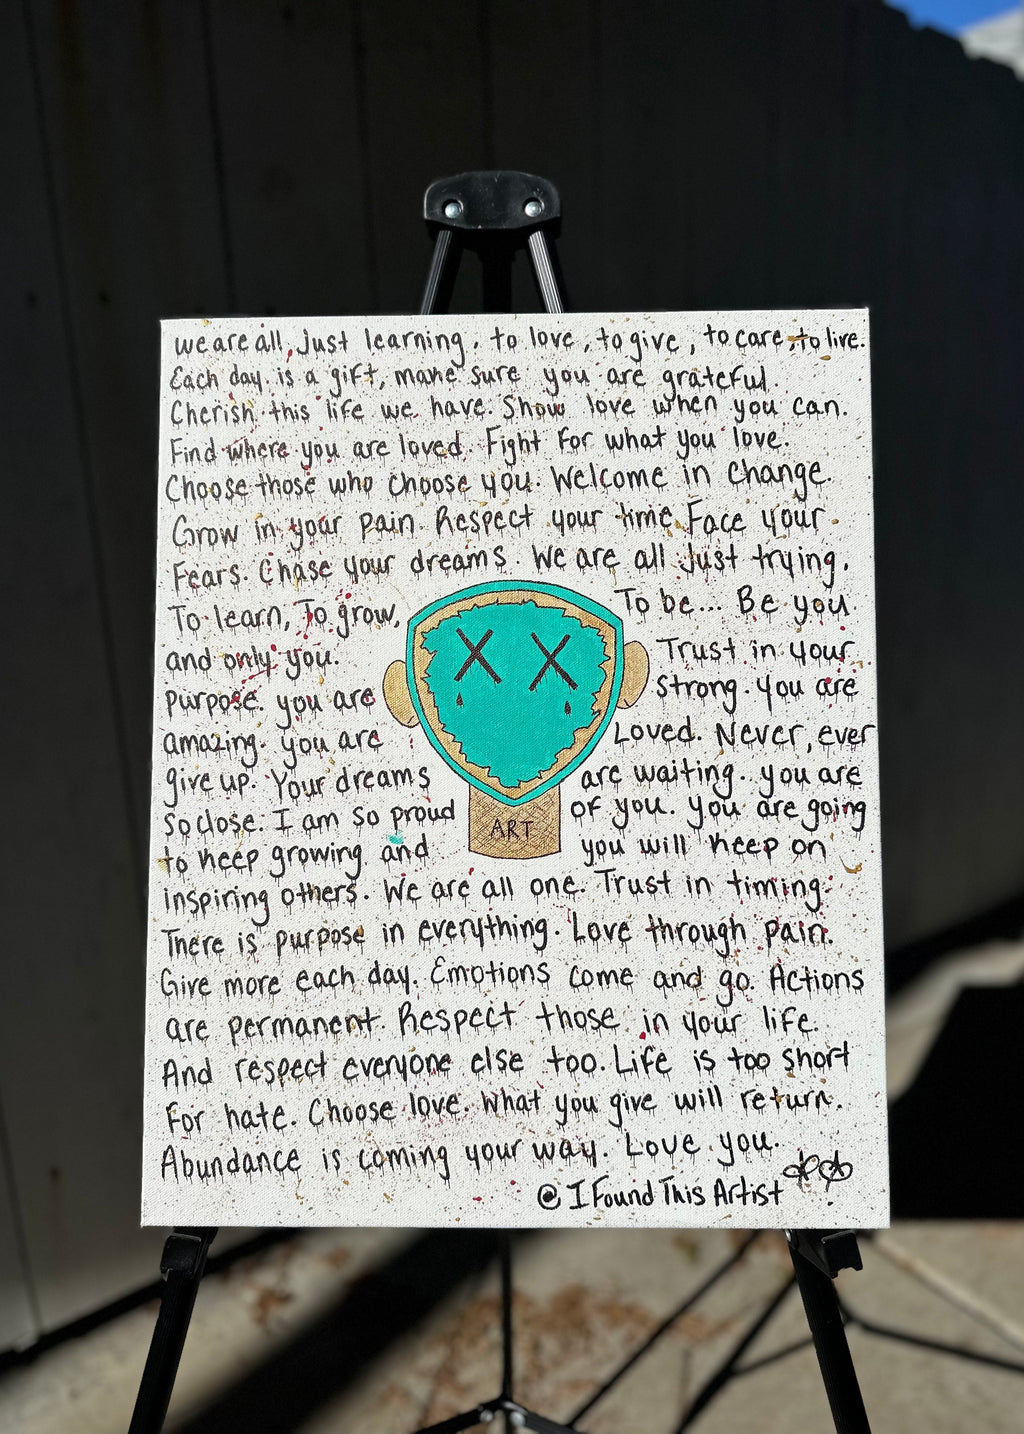 we are all, Just learning, to love, to give, to care, to live.
Each day is a gift, make sure you are grateful.
Cherish this life we have. Show love when you can.
Find where you are loved. Fight for what you love.
Choose those who choose you. Welcome in change.
Grow in your pain. Respect your time. Face your
Fears. Chase your dreams. We are all Just trying.
To learn, To grow, To be... Be you
and only you. Trust in your
purpose. you are strong. You are
amazing. you are Loved. Never, ever
give up. Your dreams are waiting. you are
so close. I am so proud of you. you are going
ART
to keep growing and you will keep on
inspiring others. We are all one. Trust in timing.
There is purpose in everything. Love through pain.
Give more each day. Emotions come and go. Actions
are permanent. Respect those in your life.
And respect everyone else too. Life is too short
For hate. Choose love. What you give will return.
Abundance is coming your way. Love you.
@ I Found This Artist